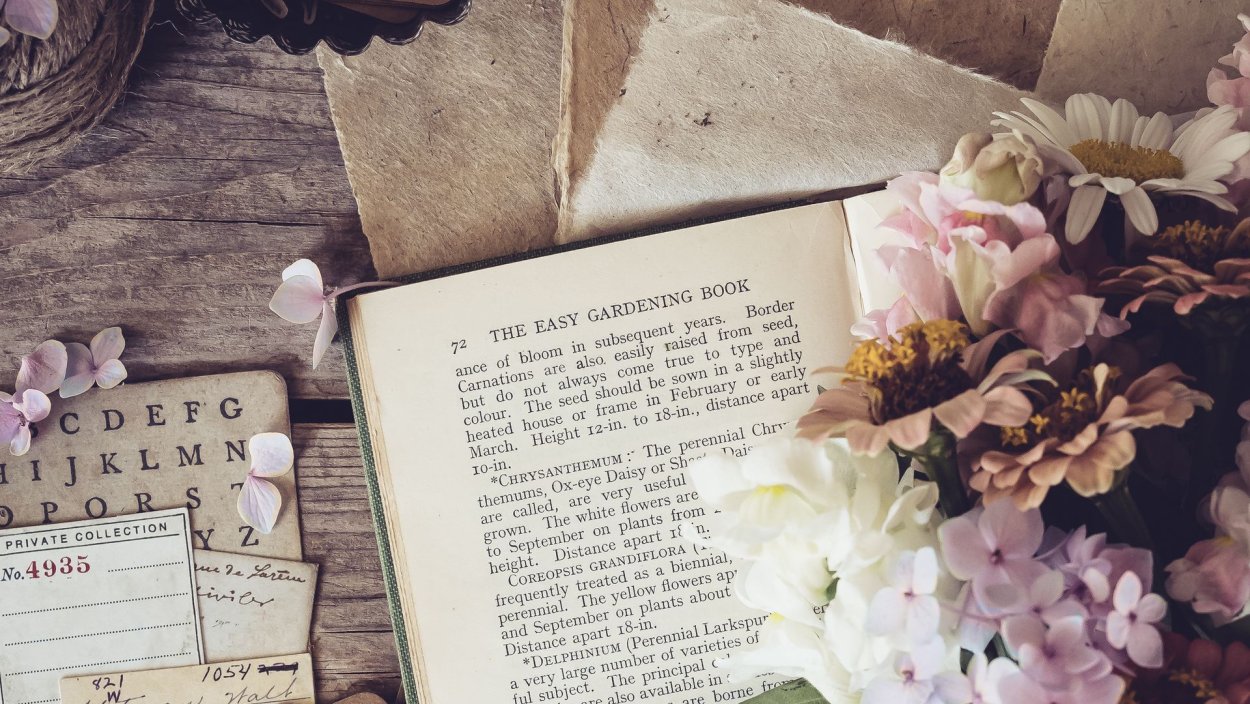 72 THE EASY GARDENING BOOK
ance of bloom in subsequent years. Border
Carnations are also easily raised from seed,
but do not always come true to type and
colour. The seed should be sown in a slightly
heated house or frame in February or early
March. Height 12-in. to 18-in., distance apart
10-in.
*CHRYSANTHEMUM: The perennial
themums, Ox-eye Daisy or
are called, are very useful
grown. The white flowers are
to September on plants from
height. Distance apart
COREOPSIS GRANDIFLORA
frequently treated as a biennial,
perennial. The yellow flowers
and September on plants about
Distance apart 18-in.
*DELPHINIUM (Perennial
a very large number of varieties of
ful subject. The principal
are also available in
are borne from
C D E F G
H I J K L M N
O P Q R S T
Y Z
PRIVATE COLLECTION
No. 4935
de
821
W
1054